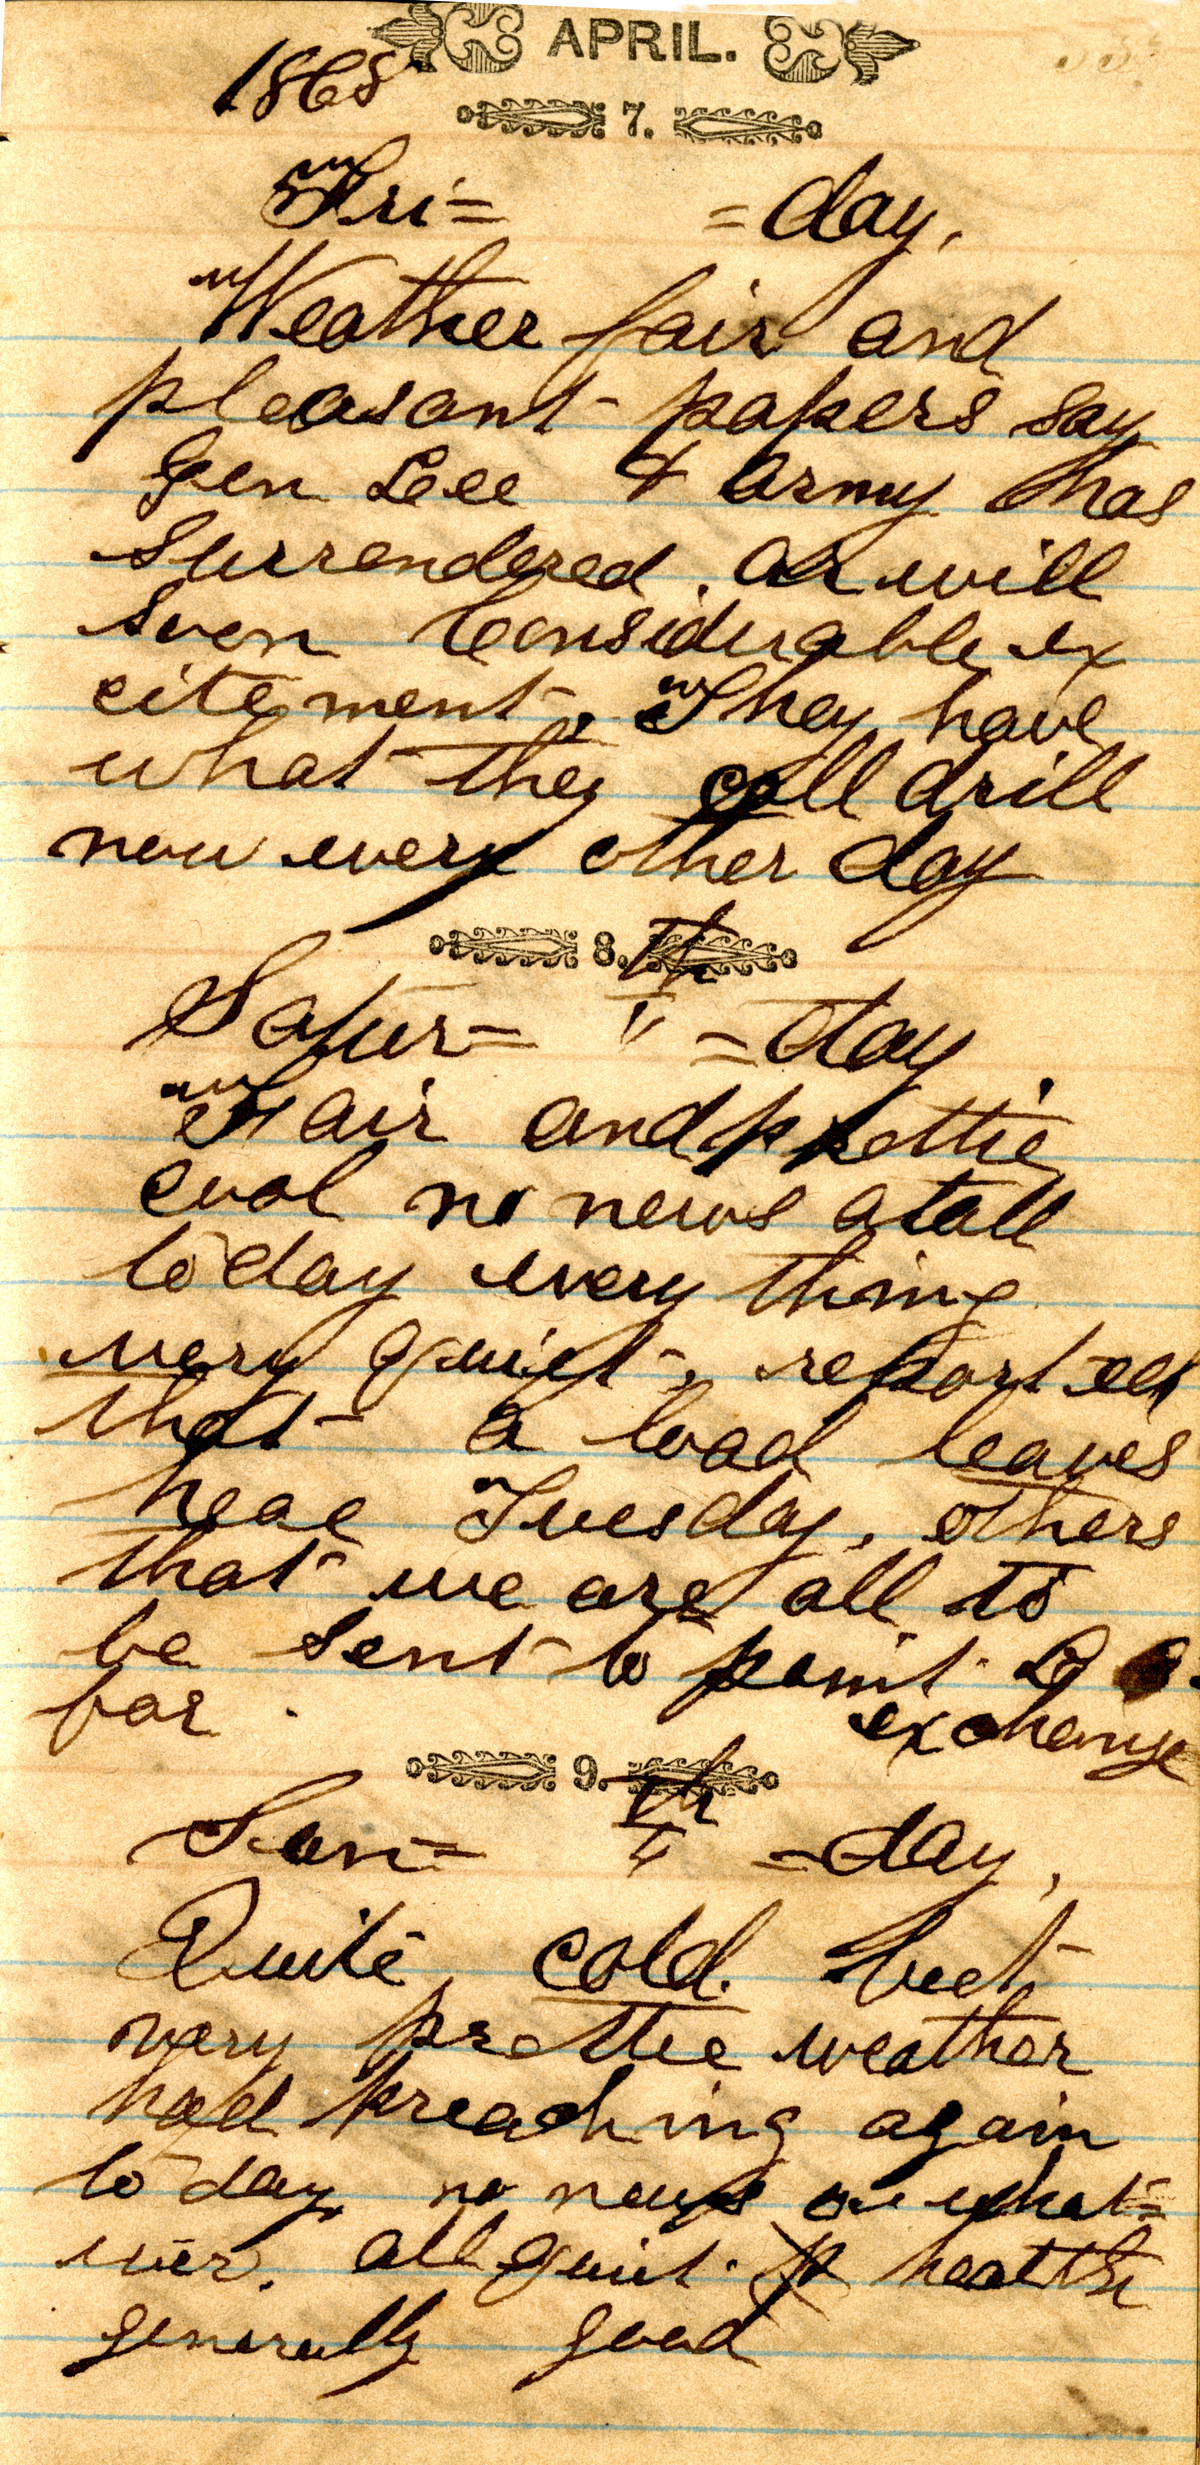 APRIL.
1865
7.
Fri= =day.
Weather fair and
pleasant - papers say
Gen Lee & army has
surrendered. or will
soon Considerable ex
citement. They have
what they call drill
now every other day
8. th
Satur= " =day.
Fair and prettie
cool no news atall
to day every thing
very quiet, reported
that a load leaves
heae Tuesday, others
that we are all to
be sent to point
for. exchange
9. th
Sun= " =day,
Quite, cold. but
very prettie weather
had preaching again
to day no news what=
ever. all quiet. health
generally good